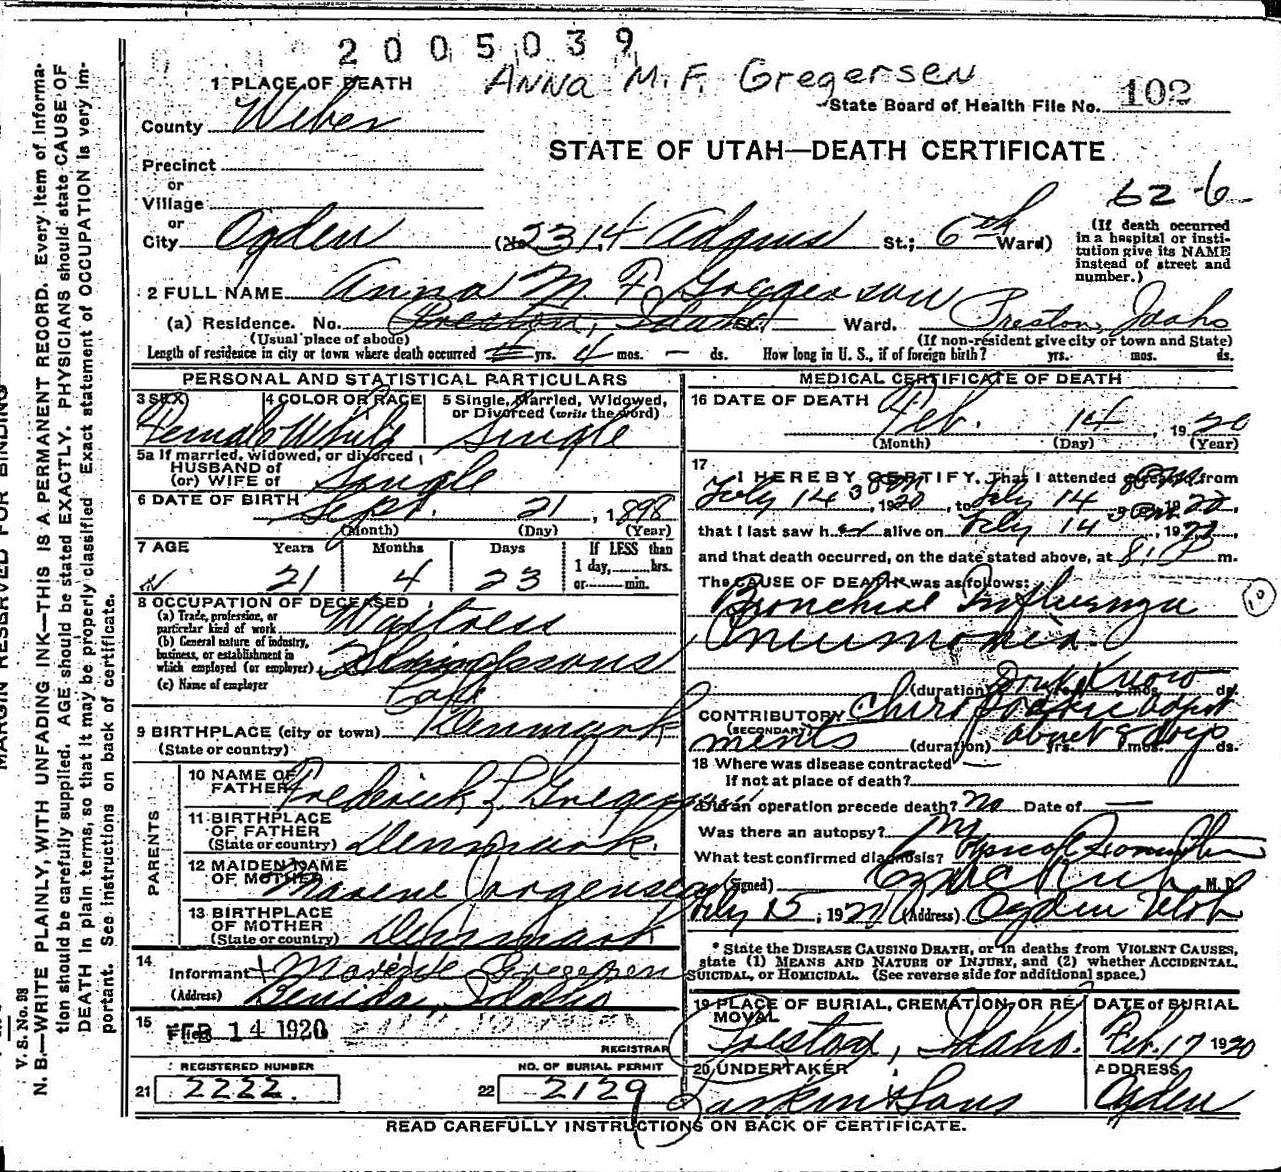 2005039
Anna M. F. Gregersen
1 PLACE OF DEATH
State Board of Health File No. 102
County Weber
STATE OF UTAH—DEATH CERTIFICATE
Precinct
or
Village
or
City Ogden (No. 2314 Adams St.; 6th Ward)
62-6
(If death occurred in a hospital or institution give its NAME instead of street and number.)
2 FULL NAME Anna M. F. Gregersen
(a) Residence. No. Preston, Idaho St. Ward. Preston, Idaho
(Usual place of abode) (If non-resident give city or town and State)
Length of residence in city or town where death occurred yrs. 4 mos. — ds. How long in U. S., if of foreign birth? yrs. mos. ds.
PERSONAL AND STATISTICAL PARTICULARS
3 SEX Female
4 COLOR OR RACE White
5 Single, Married, Widowed, or Divorced (write the word) Single
5a If married, widowed, or divorced
HUSBAND of
(or) WIFE of Single
6 DATE OF BIRTH Sept. 21, 1898
(Month) (Day) (Year)
7 AGE Years Months Days If LESS than
21 4 23 1 day, hrs.
or min.
8 OCCUPATION OF DECEASED
(a) Trade, profession, or particular kind of work Waitress
(b) General nature of industry, business, or establishment in which employed (or employer)
(c) Name of employer Cafe
9 BIRTHPLACE (city or town) Denmark
(State or country)
PARENTS
10 NAME OF FATHER Frederick L Gregersen
11 BIRTHPLACE OF FATHER (State or country) Denmark.
12 MAIDEN NAME OF MOTHER Maxene Jorgensen
13 BIRTHPLACE OF MOTHER (State or country) Denmark
14 Informant Maxene Gregersen
(Address) Benida, Idaho
15 Filed FEB 14 1920
REGISTRAR
REGISTERED NUMBER
21 2222.
NO. OF BURIAL PERMIT
22 2129
MEDICAL CERTIFICATE OF DEATH
16 DATE OF DEATH Feb. 14, 1920
(Month) (Day) (Year)
17 I HEREBY CERTIFY, That I attended deceased from
Feby 14 3 pm 1920, to Feby 14 8 pm 1920,
that I last saw her alive on Feby 14 1920,
and that death occurred, on the date stated above, at 8:1 P m.
The CAUSE OF DEATH* was as follows:
Bronchial Influenza
Pneumonia
10
(duration) Dont Know yrs. mos. ds.
CONTRIBUTORY Chiropractic adjust
(SECONDARY) ments (duration) about 8 days yrs. mos. ds.
18 Where was disease contracted —
If not at place of death?
Did an operation precede death? no Date of —
Was there an autopsy? no
What test confirmed diagnosis?
(Signed) M. D.
Feby 15, 1920 (Address) Ogden Utah
* State the DISEASE CAUSING DEATH, or in deaths from VIOLENT CAUSES, state (1) MEANS AND NATURE OF INJURY, and (2) whether ACCIDENTAL, SUICIDAL, or HOMICIDAL. (See reverse side for additional space.)
19 PLACE OF BURIAL, CREMATION, OR REMOVAL Preston, Idaho.
DATE of BURIAL Feb. 17 1920
20 UNDERTAKER Larkin & Sons
ADDRESS Ogden
READ CAREFULLY INSTRUCTIONS ON BACK OF CERTIFICATE.
MARGIN RESERVED FOR BINDING
V. S. No. 98
N. B.—WRITE PLAINLY, WITH UNFADING INK—THIS IS A PERMANENT RECORD. Every item of information should be carefully supplied. AGE should be stated EXACTLY. PHYSICIANS should state CAUSE OF DEATH in plain terms, so that it may be properly classified. Exact statement of OCCUPATION is very important. See instructions on back of certificate.